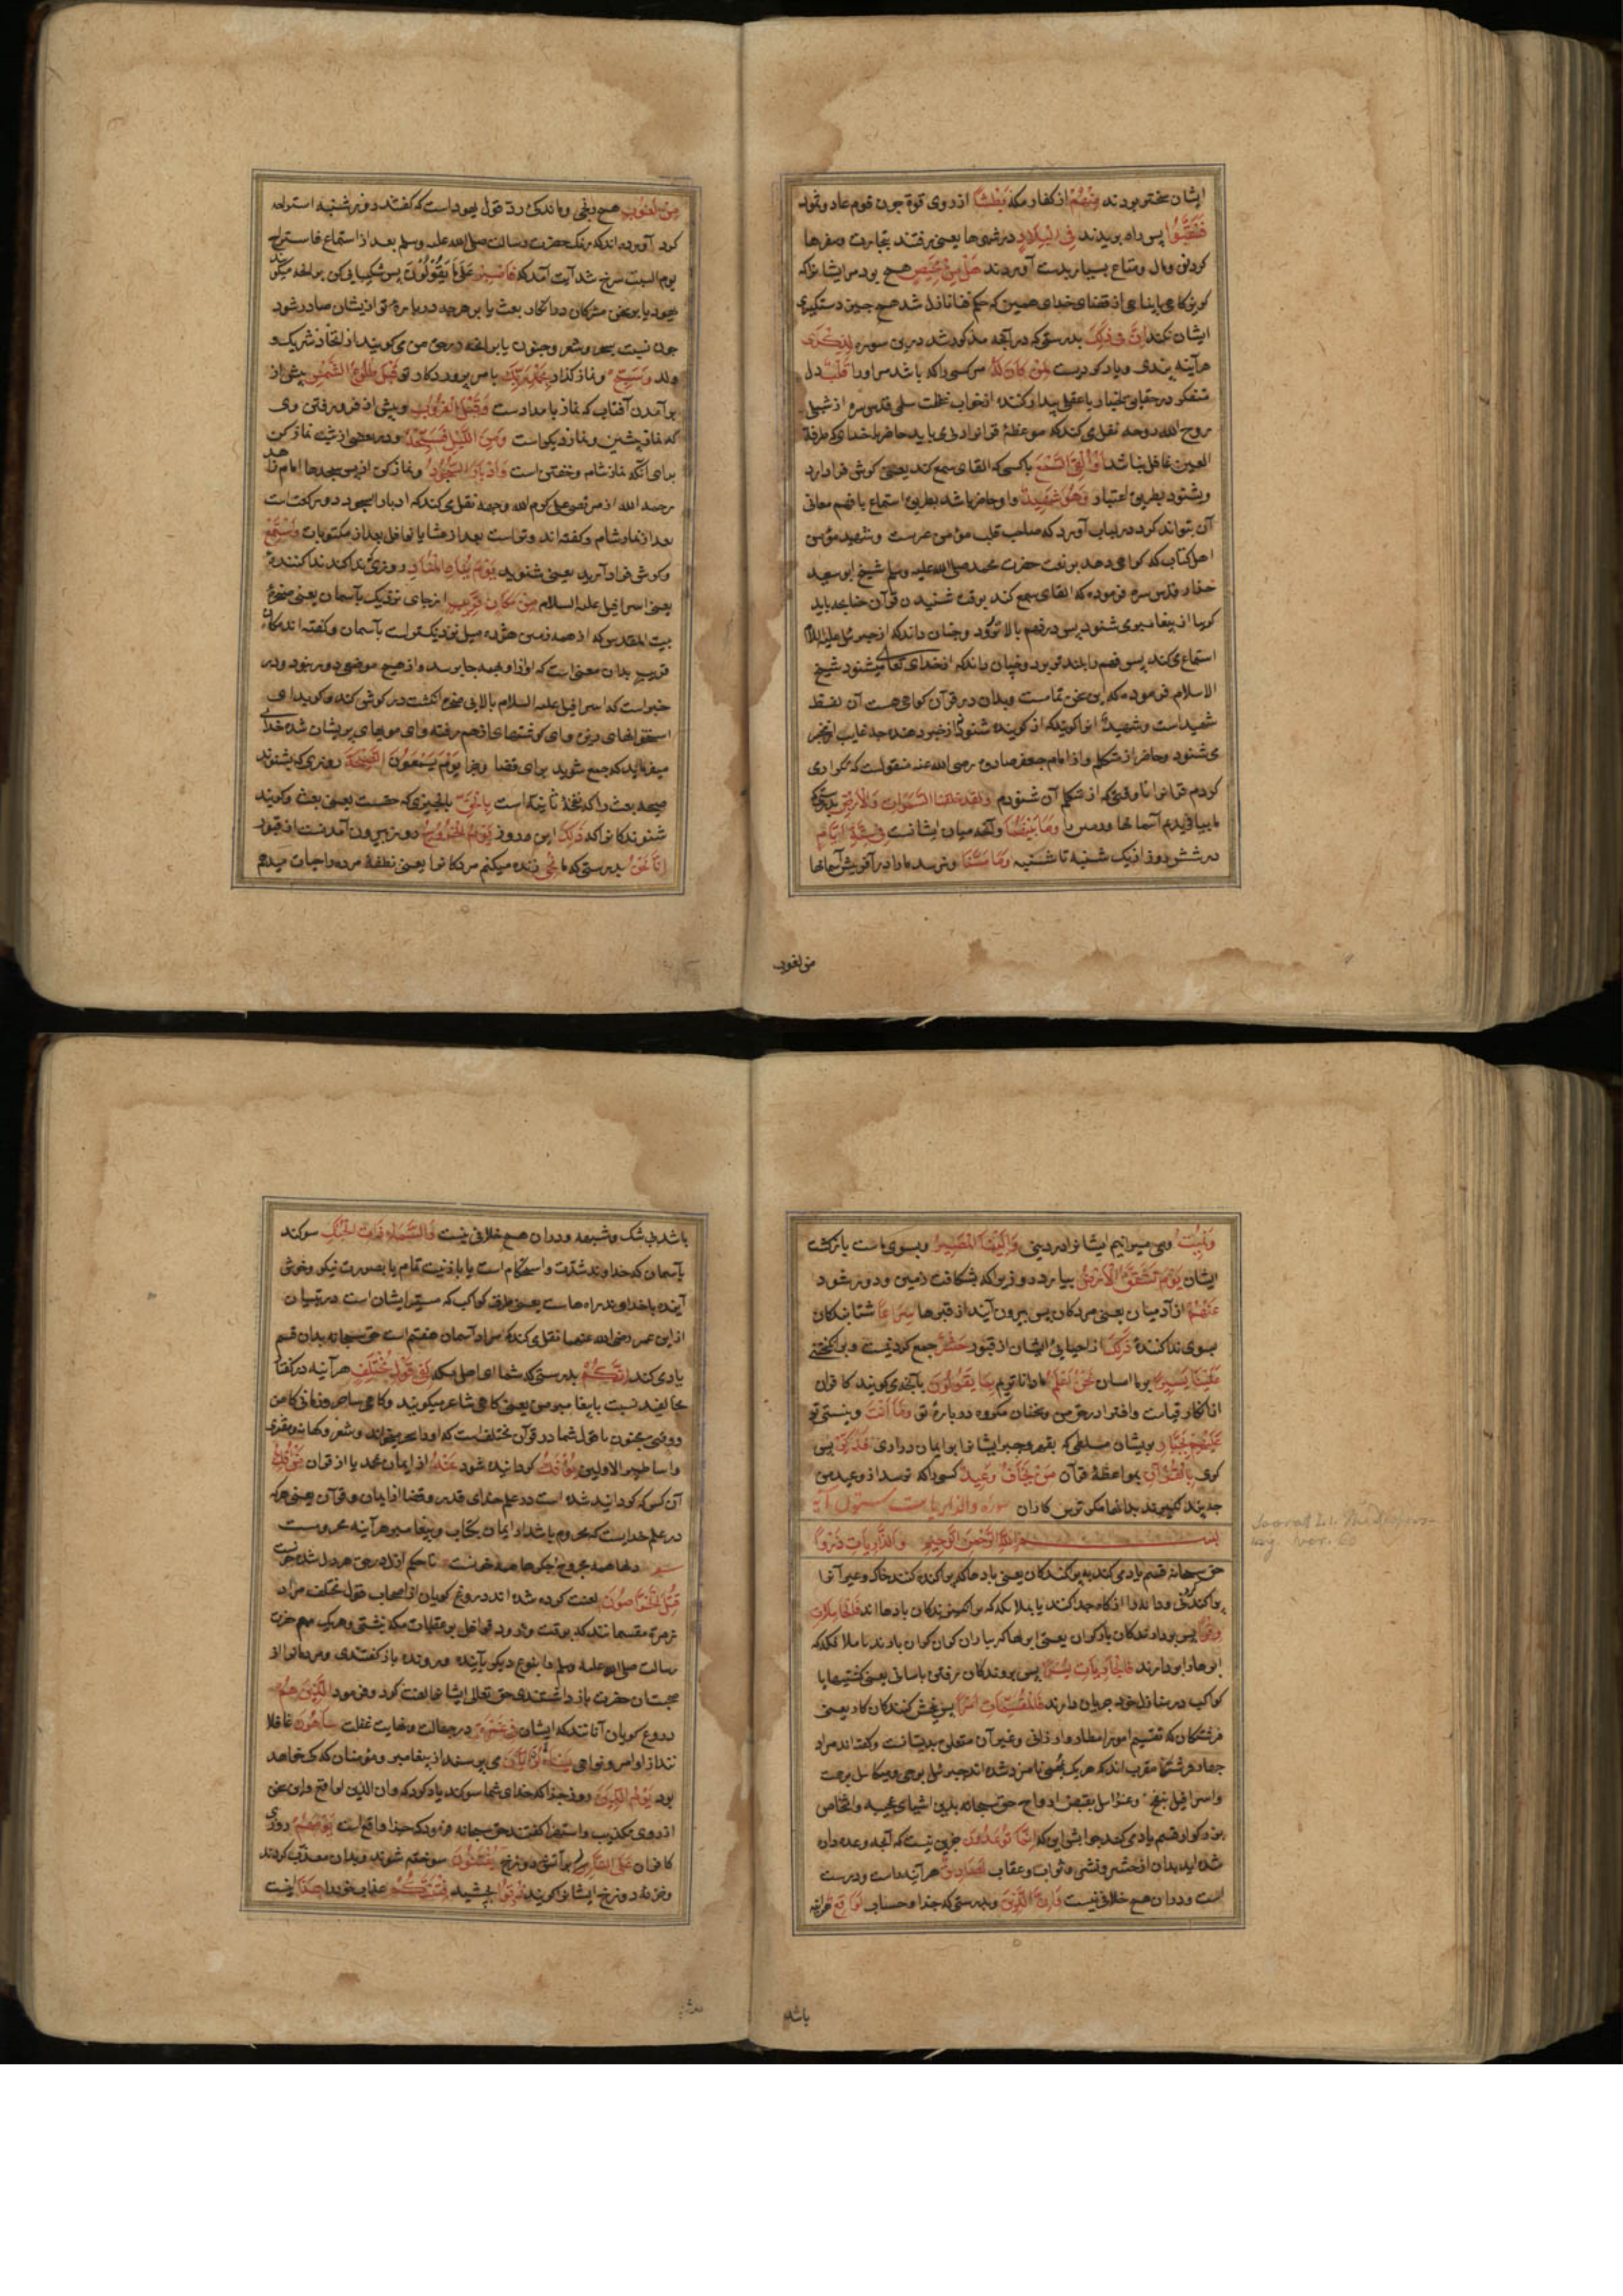 ایشان سختتر بودند مِنْهُمْ از کفار مکه بَطْشًا از روی قوة چون قوم عاد و ثمود
فَنَقَّبُوا پس راه بریدند فِی الْبِلَادِ در شهرها یعنی برفتند بتجارت و سفرها
کردند و مال و متاع بسیار بدست آوردند هَلْ مِنْ مَحِیصٍ هیچ بود مر ایشانرا که
ایشان نکند اِنَّ فِی ذٰلِکَ بدرستی که در آنچه مذکور شد درین سوره لَذِکْرٰی
هرآینه پندی و یاد کردیست لِمَنْ کَانَ لَهُ مر کسی را که باشد مر او را قَلْبٌ دل
العین غافل نباشد اَوْ اَلْقَی السَّمْعَ یا کسی که القای سمع کند یعنی گوش فرا دارد
و بشنود بطریق اعتبار وَهُوَ شَهِیدٌ و او حاضر باشد بطریق استماع یا فهم معانی
آن بتواند کرد در لباب آورد که صاحب قلب مؤمن عربست و شهید مؤمن
اهل کتاب که گواهی دهد بر نعت حضرت محمد صلی الله علیه وسلم شیخ ابو سعید
خراز قدس سره فرموده که القای سمع کند بوقت شنیدن قرآن چنانچه باید
گویا از پیغامبر می شنود پس در فهم بالاتر رود و چنان داند که از جبرئیل علیه السلام
استماع می کند پس فهم را بلند تر برد و چنان داند که از خدای تعالی میشنود شیخ
الاسلام فرموده که این سخن تمامست و بدان در قرآن گواهی هست آن لفظ
می شنود و حاضر از متکلم و از امام جعفر صادق رضی الله عنه منقولست که تکرار می
کردم قرآنرا تا وقتی که از متکلم آن شنودم وَلَقَدْ خَلَقْنَا السَّمٰوَاتِ وَالْاَرْضَ بدرستی که
ما بیافریدیم آسمانها و زمین را وَمَا بَیْنَهُمَا و آنچه میان ایشانست فِی سِتَّةِ اَیَّامٍ
در شش روز از یک شنبه تا شنبه وَمَا مَسَّنَا و نرسید ما را در آفرینش آسمانها
من لغوب
مِنْ لُغُوبٍ هیچ رنجی و ماندگی رد قول یهود است که گفتند روز شنبه استراحه
کرد آورده اند که رنگ حضرت رسالت صلی الله علیه وسلم بعد از استماع فاستراح
یوم السبت سرخ شد آیت آمد که فَاصْبِرْ عَلٰی مَا یَقُولُونَ پس شکیبایی کن بر آنچه میگویند
یهود یا بر سخن مشرکان در انکار بعث یا بر هرچه درباره تو از یشان صادر شود
چون نسبت سحر و شعر و جنون یا بر آنچه در حق من می گویند از اتخاذ شریک و
ولد وَسَبِّحْ و نماز گذار بِحَمْدِ رَبِّکَ بامر پروردکار تو قَبْلَ طُلُوعِ الشَّمْسِ پیش از
بر آمدن آفتاب که نماز بامدادست وَقَبْلَ الْغُرُوبِ و پیش از فرو رفتن وی
که نماز پیشین و نماز دیگر است وَمِنَ اللَّیْلِ فَسَبِّحْهُ و در بعضی از شب نماز کن
برای آنکه نماز شام و خفتن است وَاَدْبَارَ السُّجُودِ و نماز کن از پس سجدها امام زاهد
رحمه الله از مرتضی علی کرم الله وجهه نقل می کند که ادبار السجود دو رکعت است
بعد از نماز شام و گفته اند وتر است بعد از عشا یا نوافل بعد از مکتوبات وَاسْتَمِعْ
و گوش فرا دارید یعنی بشنوید یَوْمَ یُنَادِ الْمُنَادِ روزی که ندا کند ندا کننده
یعنی اسرافیل علیه السلام مِنْ مَکَانٍ قَرِیبٍ از جای نزدیک بآسمان یعنی صخره
بیت المقدس که از همه زمین هژده میل نزدیکتر است بآسمان و گفته اند مکان
قریب بدان معنی است که آواز او بهمه جا برسد و از هیچ موضعی دور نبود و در
خبر است که اسرافیل علیه السلام بالایی صخره انگشت در گوش کند و گوید ای
استخوانهای ریزه و ای گوشتهای از هم رفته و ای مویهای پریشان شده خدای
میفرماید که جمع شوید برای قضا و جزا یَوْمَ یَسْمَعُونَ الصَّیْحَةَ روزی که بشنوند
صیحه بعث را که نفخهٔ ثانیه است بِالْحَقِّ بآنچیزی که حقست یعنی بعث و گویند
شنوندکانرا که ذٰلِکَ این روز یَوْمُ الْخُرُوجِ روز بیرون آمدنست از قبور
اِنَّا نَحْنُ بدرستی که ما نُحْیِی زنده میکنم مردکانرا یعنی نطفهٔ مرده را حیات میدهم
وَنُمِیتُ و می میرانیم ایشانرا در دنیی وَاِلَیْنَا الْمَصِیرُ و بسوی ماست بازگشت
ایشان یَوْمَ تَشَقَّقُ الْاَرْضُ بیاد آر روزی را که بشکافت زمین و دور شود
عَنْهُمْ از آدمیان یعنی مردکان پس بیرون آیند از قبرها سِرَاعًا شتابندکان
بسوی ندا کننده ذٰلِکَ از احیایی ایشان از قبور حَشْرٌ جمع کردنیست و بر انگیختنی
عَلَیْنَا یَسِیرٌ بر ما اسان نَحْنُ اَعْلَمُ ما دانا تریم بِمَا یَقُولُونَ بآنچه می گویند کافران
از انکار قیامت و افترا در حق من و سخنان مکروه درباره تو وَمَا اَنْتَ و نیستی تو
عَلَیْهِمْ بِجَبَّارٍ بریشان مسلطی که بقهر و جبر ایشانرا بر ایمان در آری فَذَکِّرْ پس
گوی بِالْقُرْآنِ بمواعظهٔ قرآن مَنْ یَخَافُ وَعِیدِ کسی را که ترسد از وعید من
چه پند نگیرند بدانها مگر ترس کاران سوره والذاریات ستون آیة
بسم الله الرحمن الرحیم وَالذَّارِیَاتِ ذَرْوًا
حق سبحانه قسم یاد می کند به پراکنندکان یعنی بادها که پراکنده کنند خاک و غیر آنرا
پراکندنی و دانه را از کاه جدا کنند یا بملایکه که بر انگیزندکان بادها اند فَالْحَامِلَاتِ
ابرها را بر دارند فَالْجَارِیَاتِ یُسْرًا پس بروندکان برفتن باسانی یعنی کشتیها یا
کواکب در منازل خود جریان دارند فَالْمُقَسِّمَاتِ اَمْرًا پس بخش کنندکان کار یعنی
فرشتکان که تقسیم امور امطار و ارزاق و غیر آن متعلق بدیشانست و گفته اند مراد
چهار فرشتهٔ مقرب اند که هر یک بمهمی نامزد شده اند جبرئیل بوحی و میکائیل برحمت
و اسرافیل بنفخ و عزرائیل بقبض ارواح حق سبحانه بدین اشیای عجیبه و اشخاص
بزرگوار قسم یاد می کند جوابش این که اِنَّمَا تُوعَدُونَ جزین نیست که آنچه وعده داده
شده اید بدان از حشر و نشر و ثواب و عقاب لَصَادِقٌ هرآینه راست و درست
است و در آن هیچ خلاف نیست وَاِنَّ الدِّینَ و بدرستی که جزا و حساب لَوَاقِعٌ هرآینه
باشد
باشد بی شک و شبهه و در آن هیچ خلافی نیست وَالسَّمَاءِ ذَاتِ الْحُبُکِ سوگند
بآسمان که خداوند شدّت و استحکام است یا با زینت تمام یا بصورت نیکو و خوش
آینده یا خداوند راه هاست یعنی طرق کواکب که مسیر ایشان است در تبیان
از ابن عمر رضی الله عنهما نقل می کند که مراد آسمان هفتم است حق سبحانه بدان قسم
یاد می کند اِنَّکُمْ بدرستی که شما ای اهل مکه لَفِی قَوْلٍ مُخْتَلِفٍ هرآینه در گفتار
مخالفید نسبت با پیغامبر من یعنی گاهی شاعر میگویید و گاهی ساحر و زمانی کاهن
و اساطیر الاولین یُؤْفَکُ گردانیده شود عَنْهُ از ایمان محمد یا از قرآن مَنْ اُفِکَ
آن کس که گردانیده شده است در علم خدای قدر و قضا از ایمان و قرآن یعنی هرکه
در علم خدایست که محروم باشد از ایمان بکتاب و پیغامبر هرآینه محرومست
قُتِلَ الْخَرَّاصُونَ لعنت کرده شده اند دروغ گویان از اصحاب قول مختلف مراد
زمرهٔ مقسمانند که بوقت ورود قوافل بر عقبات مکه نشستی و هریک مهم حضرت
رسالت صلی الله علیه وسلم را بنوع دیگر بآینده و رونده باز گفتندی و مردمانرا از
صحبت آن حضرت باز داشتندی حق تعالی ایشانرا لعنت کرد و فرمود الَّذِینَ هُمْ
دروغ گویان آنانند که ایشان فِی غَمْرَةٍ در جهالت و نهایت غفلت سَاهُونَ غافلا
نند از اوامر و نواهی یَسْئَلُونَ اَیَّانَ می پرسند از پیغامبر و مؤمنان که کی خواهد
بود یَوْمُ الدِّینِ روز جزا که خدای شما سوگند یاد کرد که وان الدین لواقع و این سخن
از روی تکذیب و استهزا گفتند حق سبحانه فرمود که جزا واقع است یَوْمَ هُمْ روزی
کافران عَلَی النَّارِ بر آتش دوزخ یُفْتَنُونَ سوخته شوند و بدان معذّب گردند
و خزنه دوزخ ایشانرا گویند ذُوقُوا بچشید فِتْنَتَکُمْ عذاب خود را هٰذَا اینست